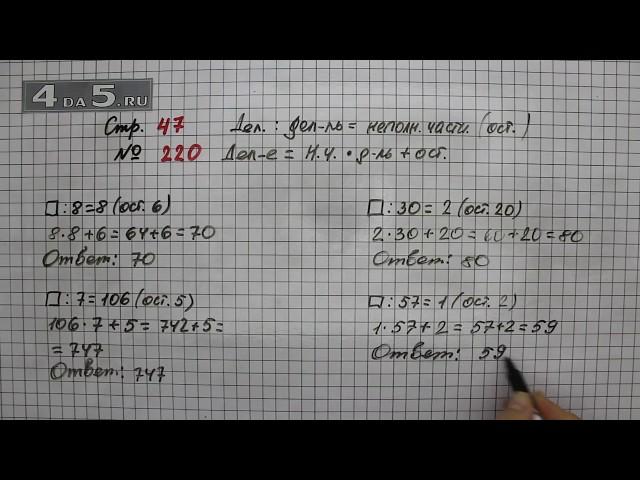 4 DA 5.RU
Стр. 47 Дел. : дел-ль = неполн. частн. (ост.)
№ 220 Дел-е = Н.ч. · д-ль + ост.
□ : 8 = 8 (ост. 6)
8 · 8 + 6 = 64 + 6 = 70
Ответ: 70
□ : 30 = 2 (ост. 20)
2 · 30 + 20 = 60 + 20 = 80
Ответ: 80
□ : 7 = 106 (ост. 5)
106 · 7 + 5 = 742 + 5 =
= 747
Ответ: 747
□ : 57 = 1 (ост. 2)
1 · 57 + 2 = 57 + 2 = 59
Ответ: 59